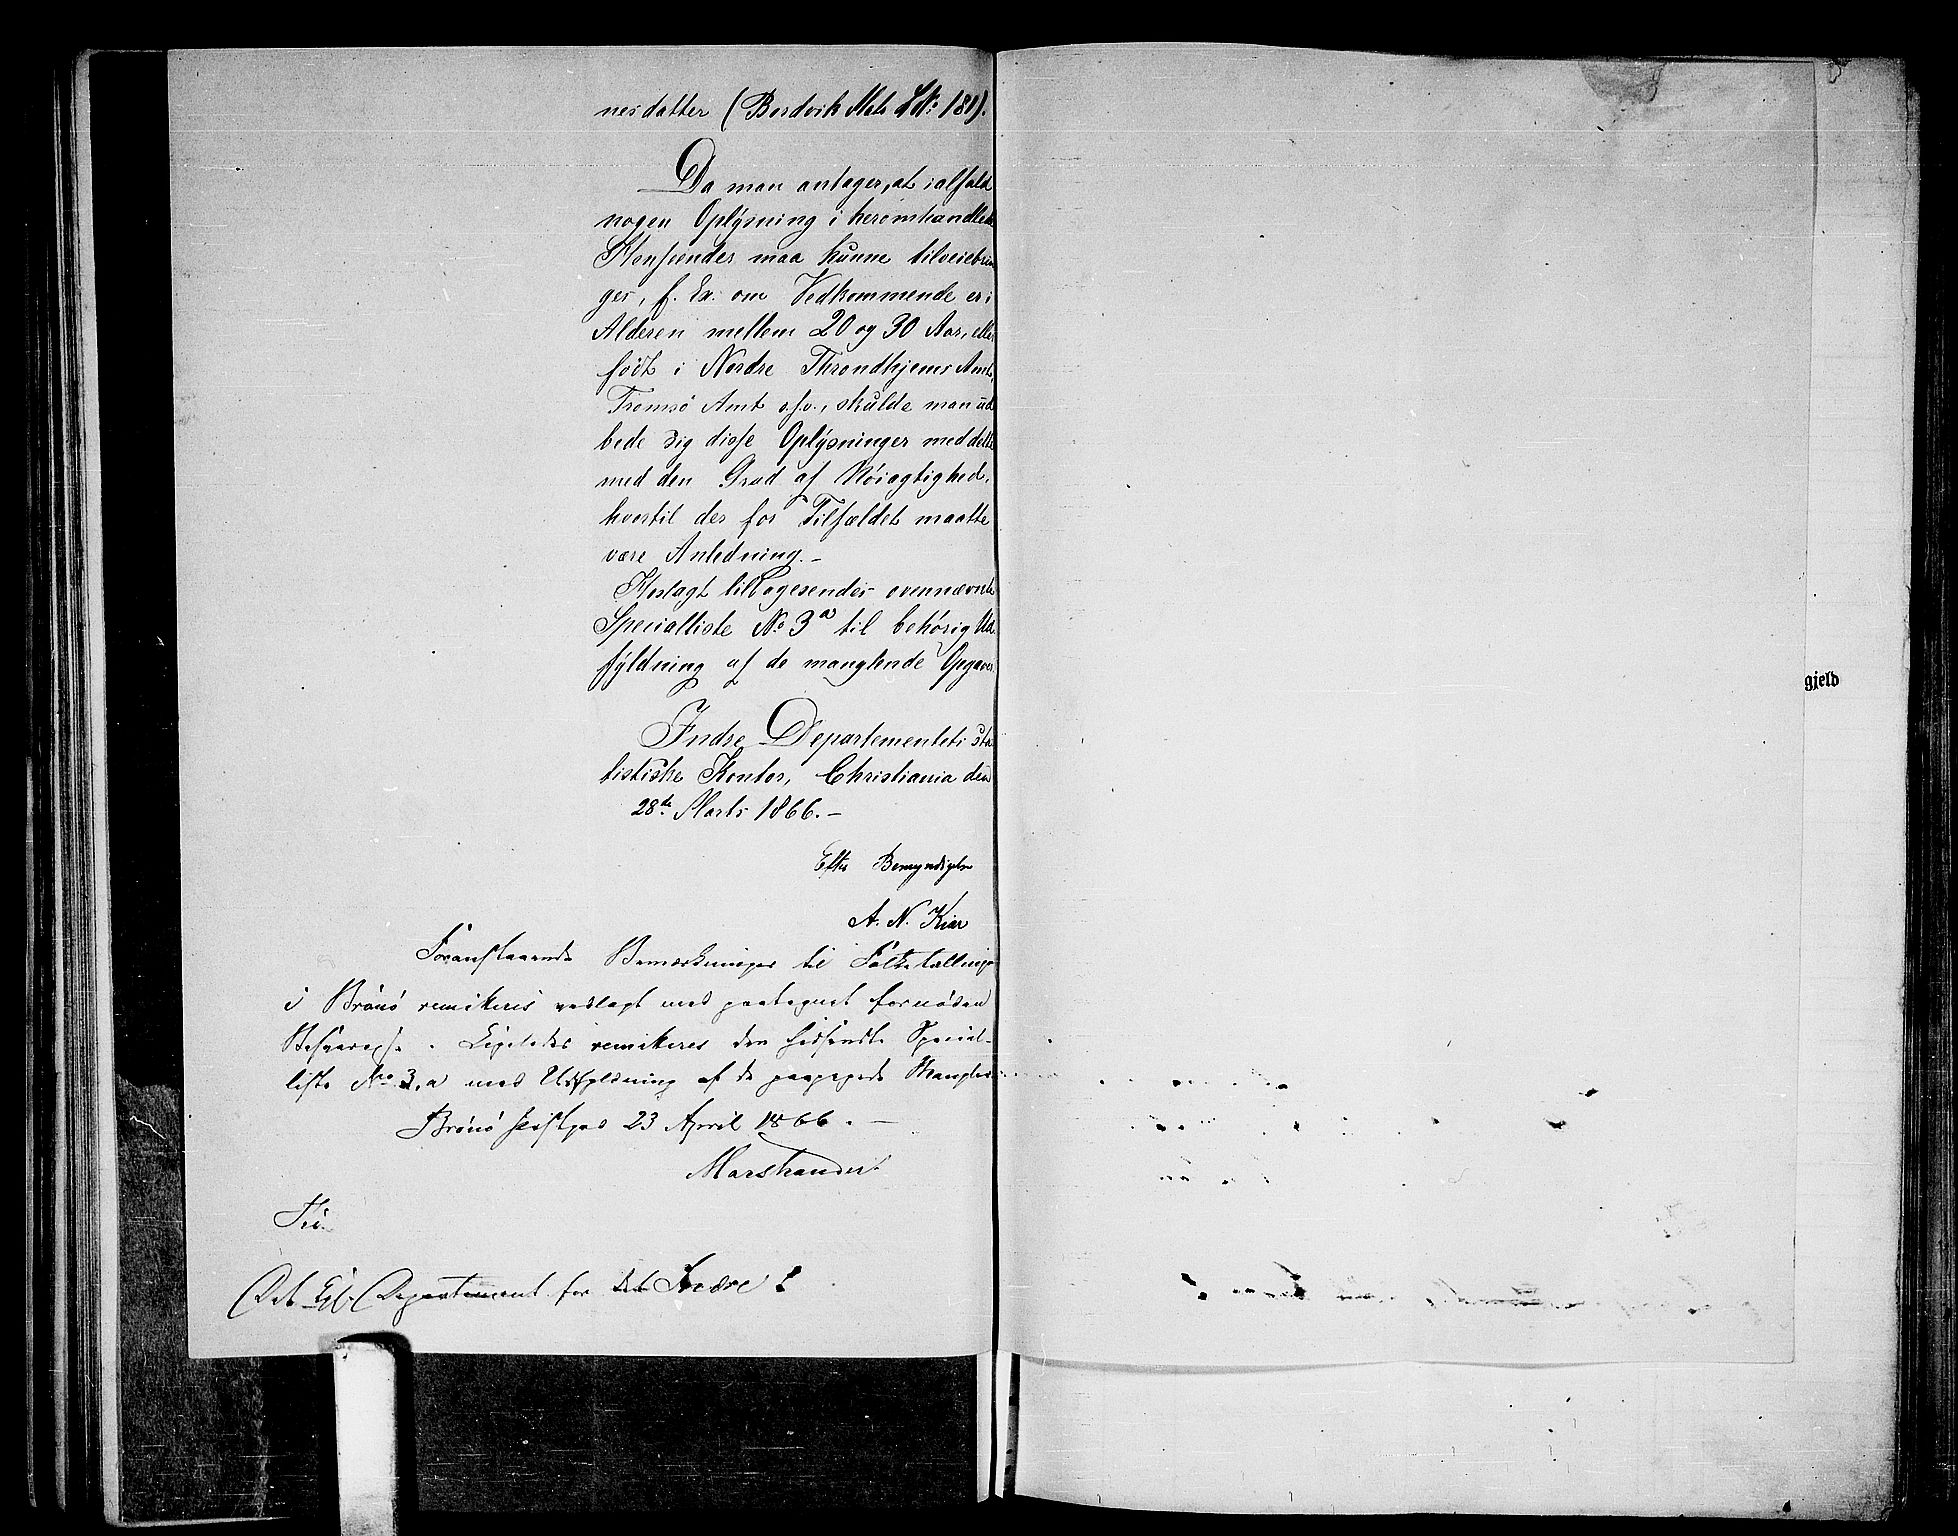 nesdatter (Bordvik Mats LNo 181).
Da man antager, at ialfald
nogen Oplysning i heromhandlede
Henseender maa kunne tilveiebrin
ges, f. Ex. om Vedkommende er i
Alderen mellem 20 og 30 Aar, eller
født i Nordre Throndhjems Amt,
Tromsø Amt o.s.v., skulde man ud
bede sig disse Oplysninger meddelte
med den Grad af Nøiagtighed,
hvortil der for Tilfældet maatte
være Anledning.–
Herlagt tilbagesendes ovennævnte
Specialliste No 3a til behørig Ud
fyldning af de manglende Opgaver.
Indre Departementets sta
tistiske Kontor, Christiania den
28de Marts 1866.–
Efter Bemyndigelse
A. N. Kiær
Foranstaaende Bemærkninger til Folketællingen
i Brønø remitteres vedlagt med paategnet fornøden
Besvarelse. Ligeledes remitteres den hidsendte Special-
liste No 3,a med Udfyldning af de paapegede Mangler
Brønø 23 April 1866.–
Til
Det Kgl. Departement for det Indre
gjeld